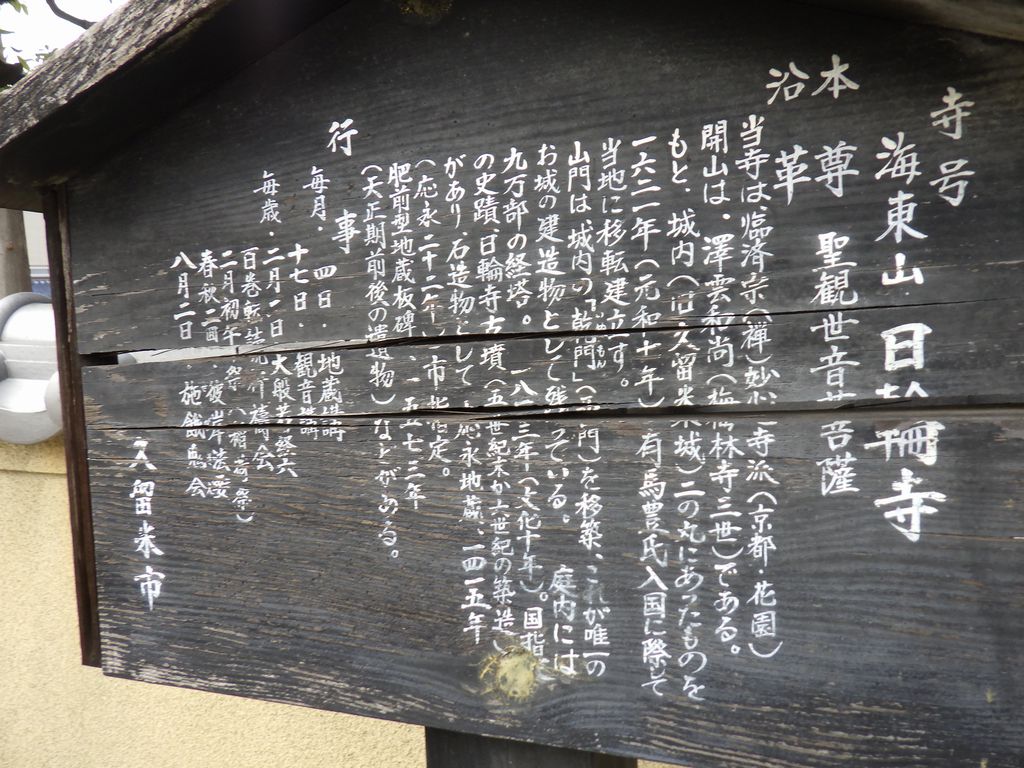 寺号
海東山 日輪寺
本尊 聖観世音菩薩
沿革
当寺は、臨済宗（禅）妙心寺派（京都・花園）
開山は、澤雲和尚（梅林寺三世）である。
もと、城内（旧久留米城）二の丸にあったものを
一六二一年（元和十年）有馬豊氏入国に際して
当地に移転建立す。
山門は、城内の「乾門」（門）を移築、これが唯一の
お城の建造物として残っている。庭内には
九万部の経塔。一八一三年（文化十年）。国指
の史蹟、日輪寺古墳（五世紀末か六世紀の築造）
があり、石造物として、応永地蔵、一四一五年
（応永二十二年）、市指定。
肥前型地蔵板碑、一五七三年
（天正期前後の遺物）などがある。
行事
毎月、四日・地蔵講
十七日・観音講
毎歳・二月一日・大般若経六
百巻転読祈祷会
二月初午祭（稲荷祭）
春秋二回・彼岸法要
八月二日・施餓鬼会
久留米市